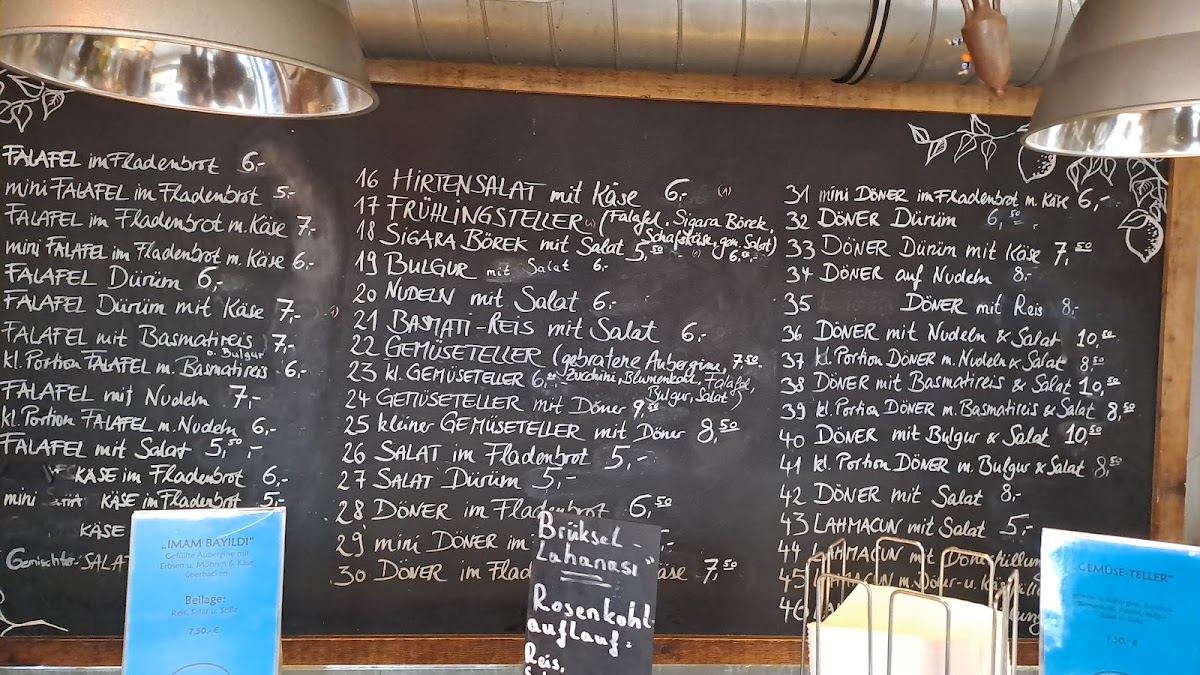 FALAFEL im Fladenbrot 6,-
mini FALAFEL im Fladenbrot 5,-
FALAFEL im Fladenbrot m. Käse 7,-
mini FALAFEL im Fladenbrot m. Käse 6,-
FALAFEL Dürüm 6,-
FALAFEL Dürüm mit Käse 7,-
FALAFEL mit Basmatireis 7,-
o. Bulgur
kl. Portion FALAFEL m. Basmatireis 6,-
FALAFEL mit Nudeln 7,-
kl. Portion FALAFEL m. Nudeln 6,-
FALAFEL mit Salat 5,50
KÄSE im Fladenbrot 6,-
mini KÄSE im Fladenbrot 5,-
KÄSE
Gemischter-SALAT
16 HIRTENSALAT mit Käse 6,-
17 FRÜHLINGSTELLER (Falafel, Sigara Börek,
Schafskäse, gem. Salat) 6,00
18 SIGARA BÖREK mit Salat 5,50
19 BULGUR mit Salat 6,-
20 NUDELN mit Salat 6,-
21 BASMATI-REIS mit Salat 6,-
22 GEMÜSETELLER (gebratene Aubergine, 7,50
23 kl. GEMÜSETELLER 6,- Zucchini, Blumenkohl, Falafel,
Bulgur, Salat)
24 GEMÜSETELLER mit Döner 9,50
25 kleiner GEMÜSETELLER mit Döner 8,50
26 SALAT im Fladenbrot 5,-
27 SALAT Dürüm 5,-
28 DÖNER im Fladenbrot 6,50
29 mini DÖNER im
30 DÖNER im Flad Käse 7,50
31 mini DÖNER im Fladenbrot m. Käse 6,-
32 DÖNER Dürüm 6,50
33 DÖNER Dürüm mit Käse 7,50
34 DÖNER auf Nudeln 8,-
35 DÖNER mit Reis 8,-
36 DÖNER mit Nudeln & Salat 10,00
37 kl. Portion DÖNER m. Nudeln & Salat 8,50
38 DÖNER mit Basmatireis & Salat 10,50
39 kl. Portion DÖNER m. Basmatireis & Salat 8,50
40 DÖNER mit Bulgur & Salat 10,50
41 kl. Portion DÖNER m. Bulgur & Salat 8,50
42 DÖNER mit Salat 8,-
43 LAHMACUN mit Salat 5,-
44 LAHMACUN mit Dönerfüllung
45 LAHMACUN m. Döner- u. Käse
46
„IMAM BAYILDI"
Gefüllte Aubergine mit
Erbsen u. Möhren & Käse
überbacken
Beilage:
Reis, Salat u. Soße
7,50,- €
Brüksel
Lahanası"
Rosenkohl-
auflauf:
Reis,
„GEMÜSE-TELLER"
7,50 €